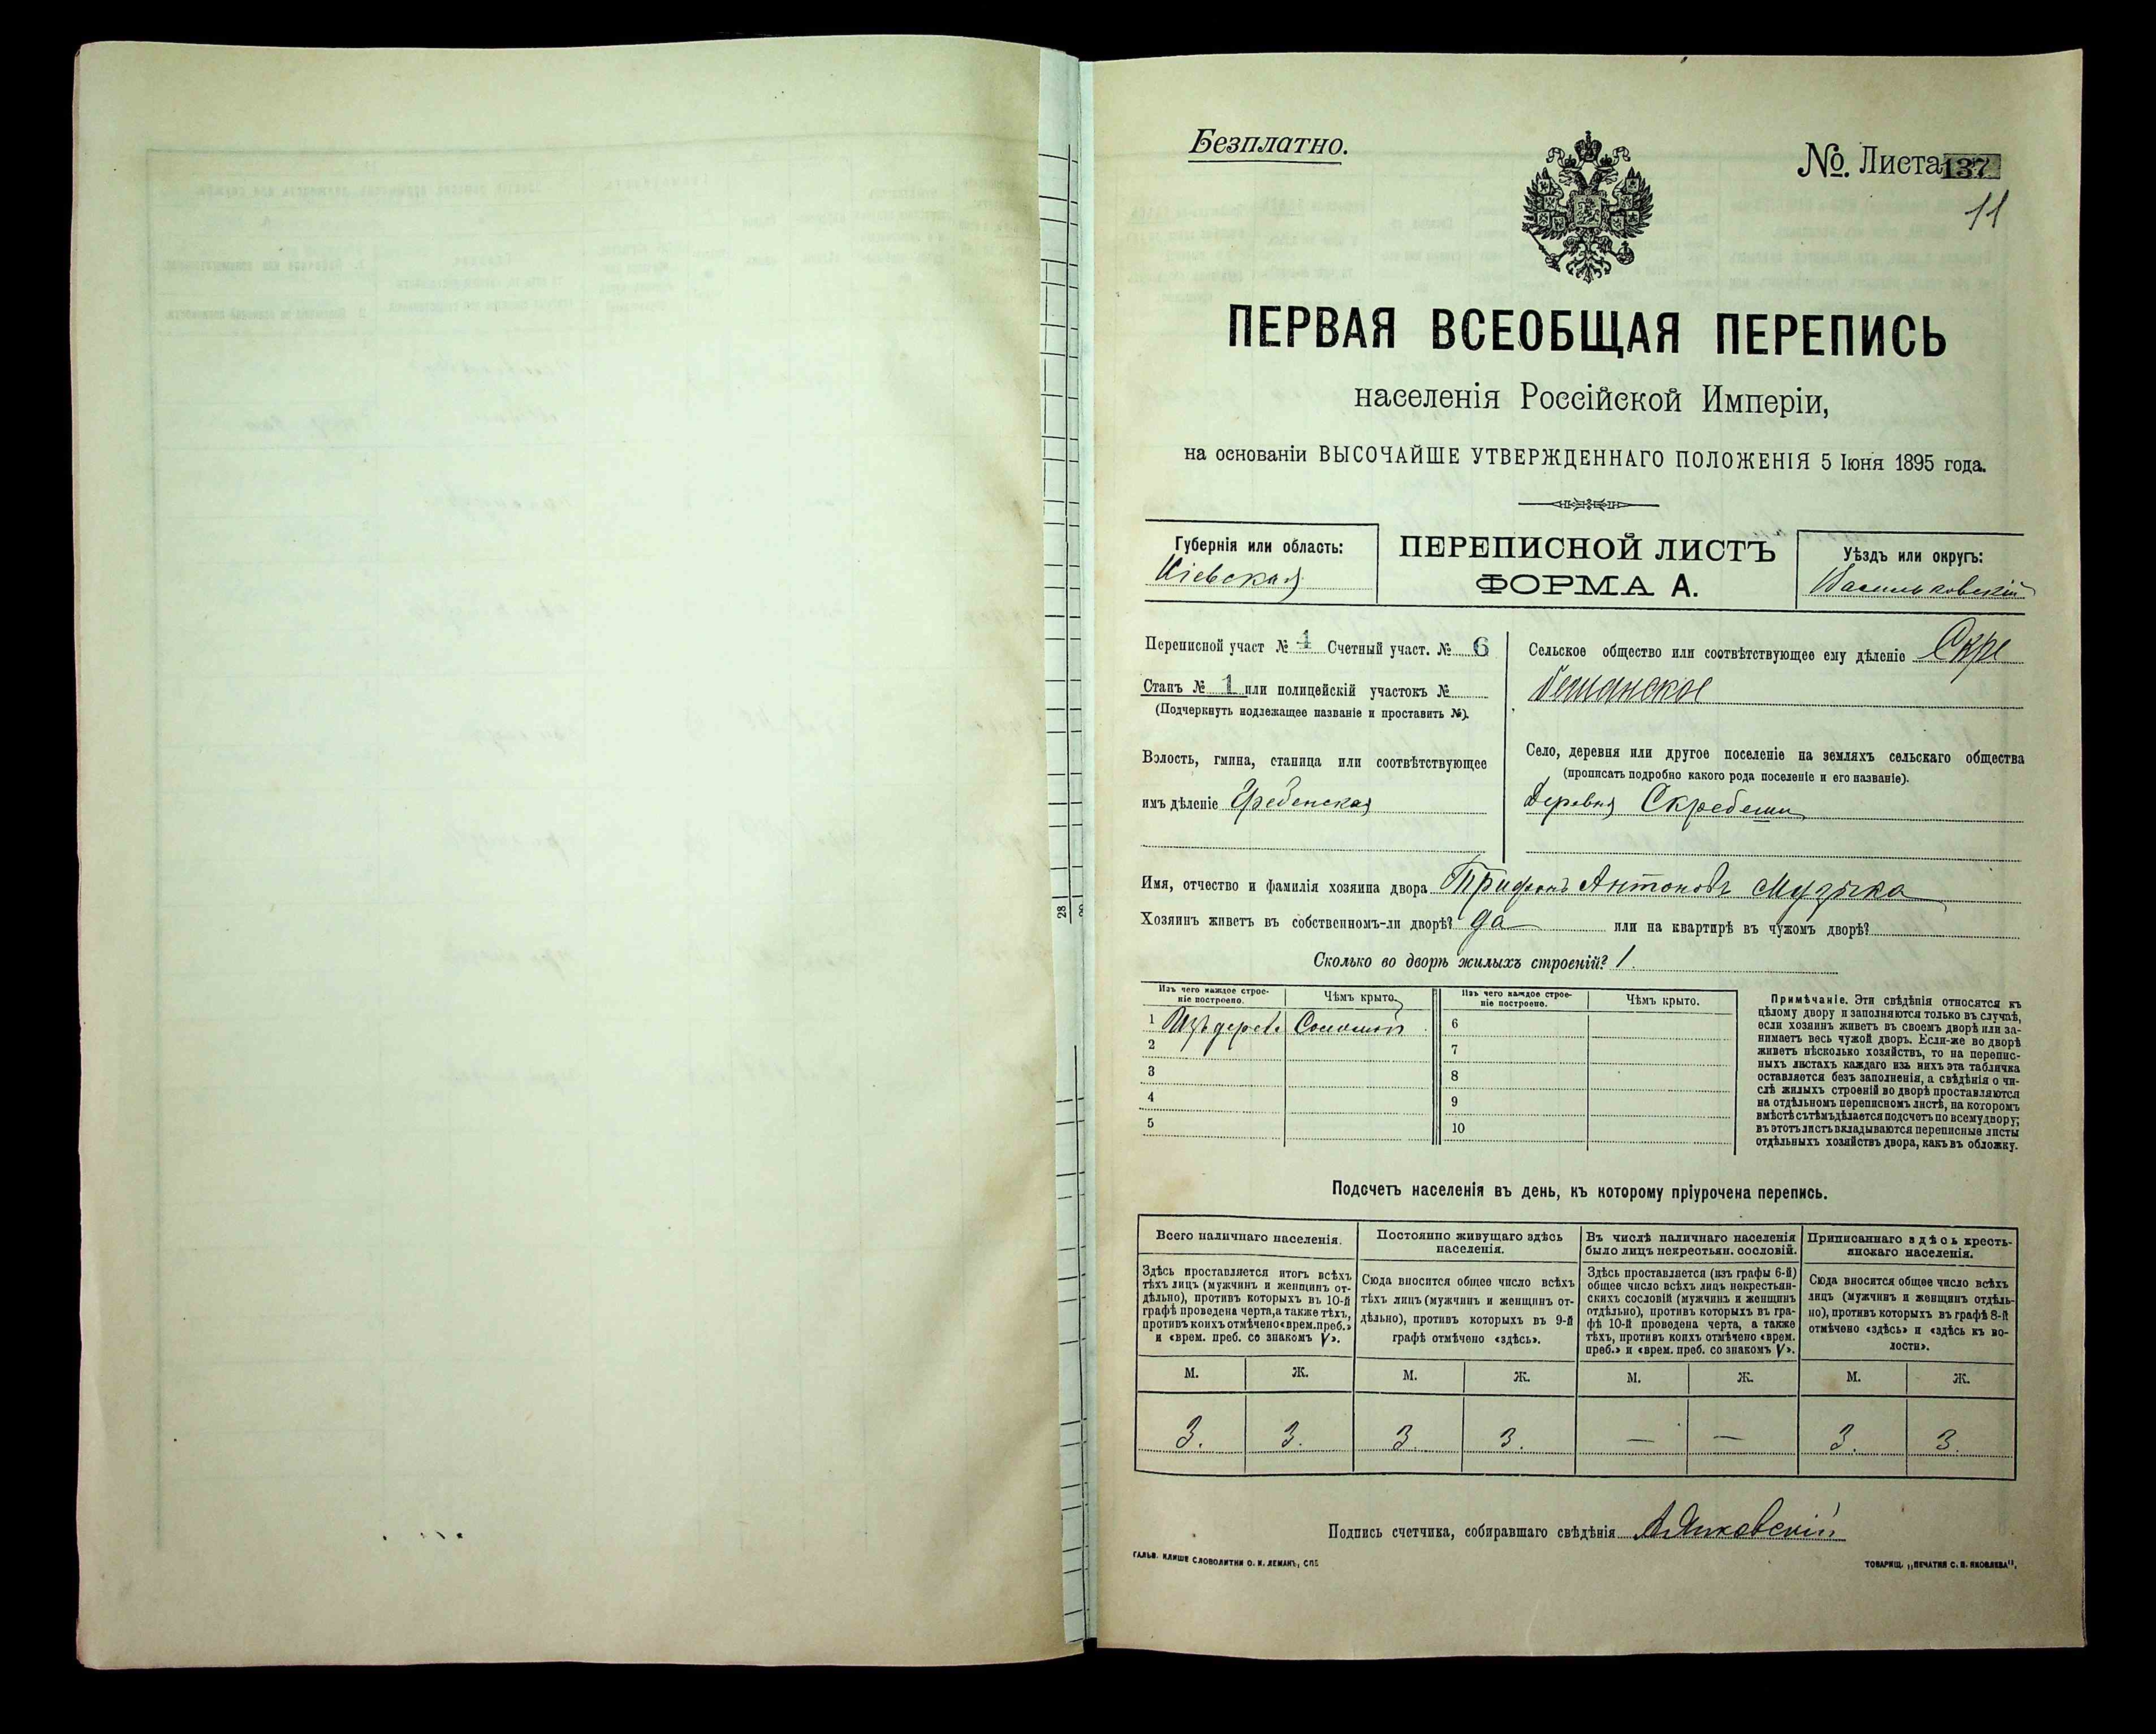 Безплатно.
№. Листа 137
11
ПЕРВАЯ ВСЕОБЩАЯ ПЕРЕПИСЬ
населенія Россійской Имперіи,
на основаніи ВЫСОЧАЙШЕ УТВЕРЖДЕННАГО ПОЛОЖЕНІЯ 5 Іюня 1895 года.
Губернія или область:
Кіевская
ПЕРЕПИСНОЙ ЛИСТЪ
ФОРМА А.
Уѣздъ или округъ:
Васильковскій
Переписной участ № 1 Счетный участ. № 6
Станъ № 1 или полицейскій участокъ №
(Подчеркнуть подлежащее названіе и проставить №).
Волость, гмина, станица или соотвѣтствующее
имъ дѣленіе Гребенская
Сельское общество или соотвѣтствующее ему дѣленіе Скре
бешанское
Село, деревня или другое поселеніе на земляхъ сельскаго общества
(прописать подробно какого рода поселеніе и его названіе).
Деревня Скребеши
Имя, отчество и фамилія хозяина двора Трифонъ Антоновъ Музыка
Хозяинъ живетъ въ собственномъ-ли дворѣ? да или на квартирѣ въ чужомъ дворѣ?
Сколько во дворѣ жилыхъ строеній? 1.
Изъ чего каждое строе-
ніе построено.
Чѣмъ крыто.
Изъ чего каждое строе-
ніе построено.
Чѣмъ крыто.
1 Изъ дерева Соломой
2
3
4
5
6
7
8
9
10
Примѣчаніе. Эти свѣдѣнія относятся къ
цѣлому двору и заполняются только въ случаѣ,
если хозяинъ живетъ въ своемъ дворѣ или за-
нимаетъ весь чужой дворъ. Если-же во дворѣ
живетъ нѣсколько хозяйствъ, то на перепис-
ныхъ листахъ каждаго изъ нихъ эта табличка
оставляется безъ заполненія, а свѣдѣнія о чи-
слѣ жилыхъ строеній во дворѣ проставляются
на отдѣльномъ переписномъ листѣ, на которомъ
вмѣстѣ съ тѣмъ дѣлается подсчетъ по всему двору;
въ этотъ листъ вкладываются переписные листы
отдѣльныхъ хозяйствъ двора, какъ въ обложку.
Подсчетъ населенія въ день, къ которому пріурочена перепись.
Всего наличнаго населенія.
Здѣсь проставляется итогъ всѣхъ
тѣхъ лицъ (мужчинъ и женщинъ от-
дѣльно), противъ которыхъ въ 10-й
графѣ проведена черта, а также тѣхъ,
противъ коихъ отмѣчено «врем. преб.»
и «врем. преб. со знакомъ V».
Постоянно живущаго здѣсь
населенія.
Сюда вносится общее число всѣхъ
тѣхъ лицъ (мужчинъ и женщинъ от-
дѣльно), противъ которыхъ въ 9-й
графѣ отмѣчено «здѣсь».
Въ числѣ наличнаго населенія
было лицъ некрестьян. сословій.
Здѣсь проставляется (изъ графы 6-й)
общее число всѣхъ лицъ некрестьян-
скихъ сословій (мужчинъ и женщинъ
отдѣльно), противъ которыхъ въ гра-
фѣ 10-й проведена черта, а также
тѣхъ, противъ коихъ отмѣчено «врем.
преб.» и «врем. преб. со знакомъ V».
Приписаннаго здѣсь кресть-
янскаго населенія.
Сюда вносится общее число всѣхъ
лицъ (мужчинъ и женщинъ отдѣль-
но), противъ которыхъ въ графѣ 8-й
отмѣчено «здѣсь» и «здѣсь къ во-
лости».
М. Ж. М. Ж. М. Ж. М. Ж.
3. 3. 3. 3. — — 3. 3.
Подпись счетчика, собиравшаго свѣдѣнія
ГАЛЬВ. КЛИШЕ СЛОВОЛИТНИ О. И. ЛЕМАНЪ, СПБ
ТОВАРИЩ. „ПЕЧАТНЯ С. П. ЯКОВЛЕВА".
28